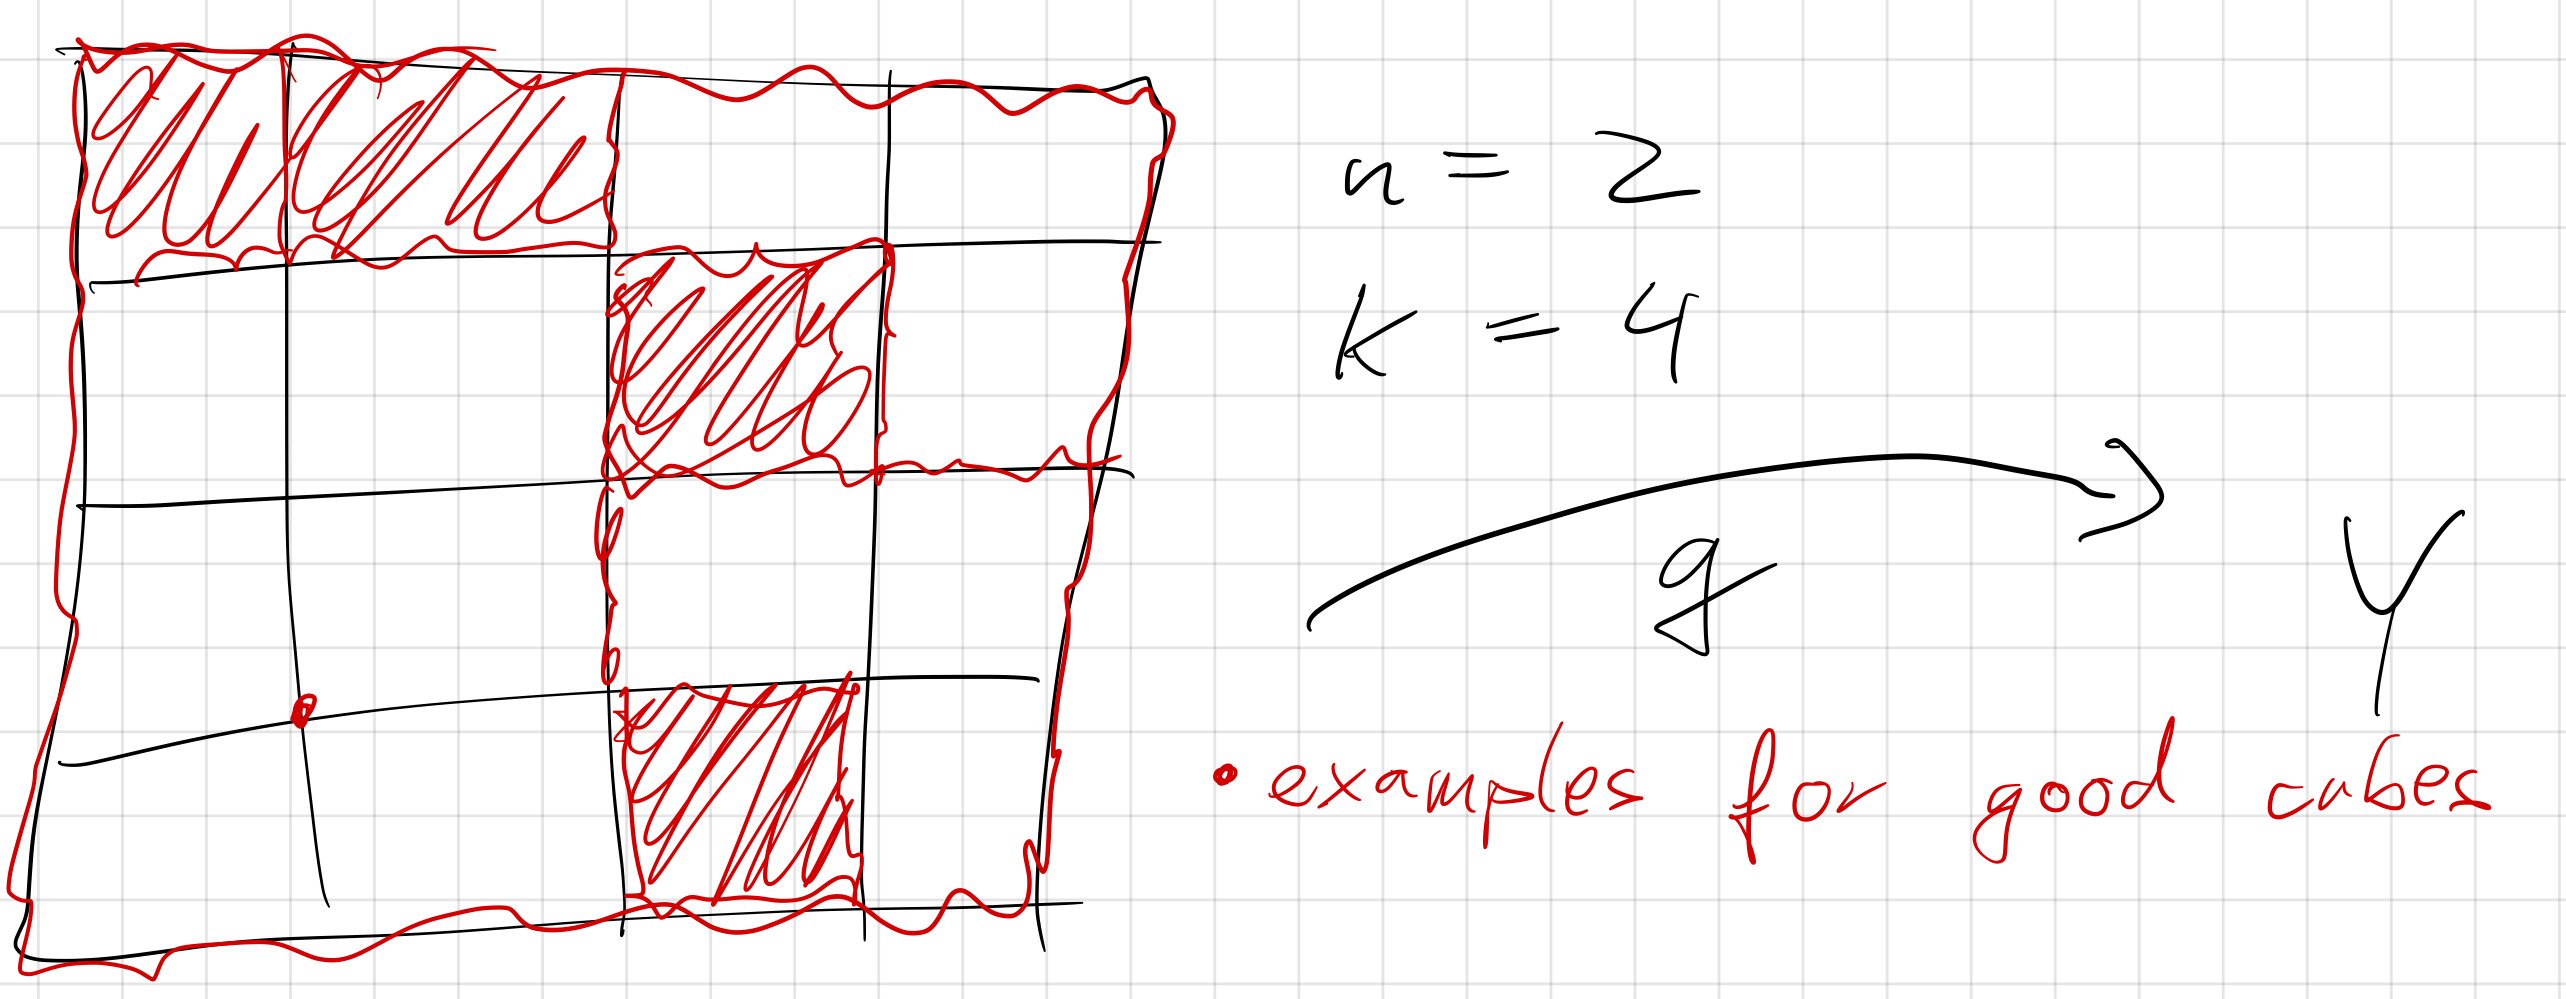 n = 2
k = 4
g
Y
• examples for good cubes